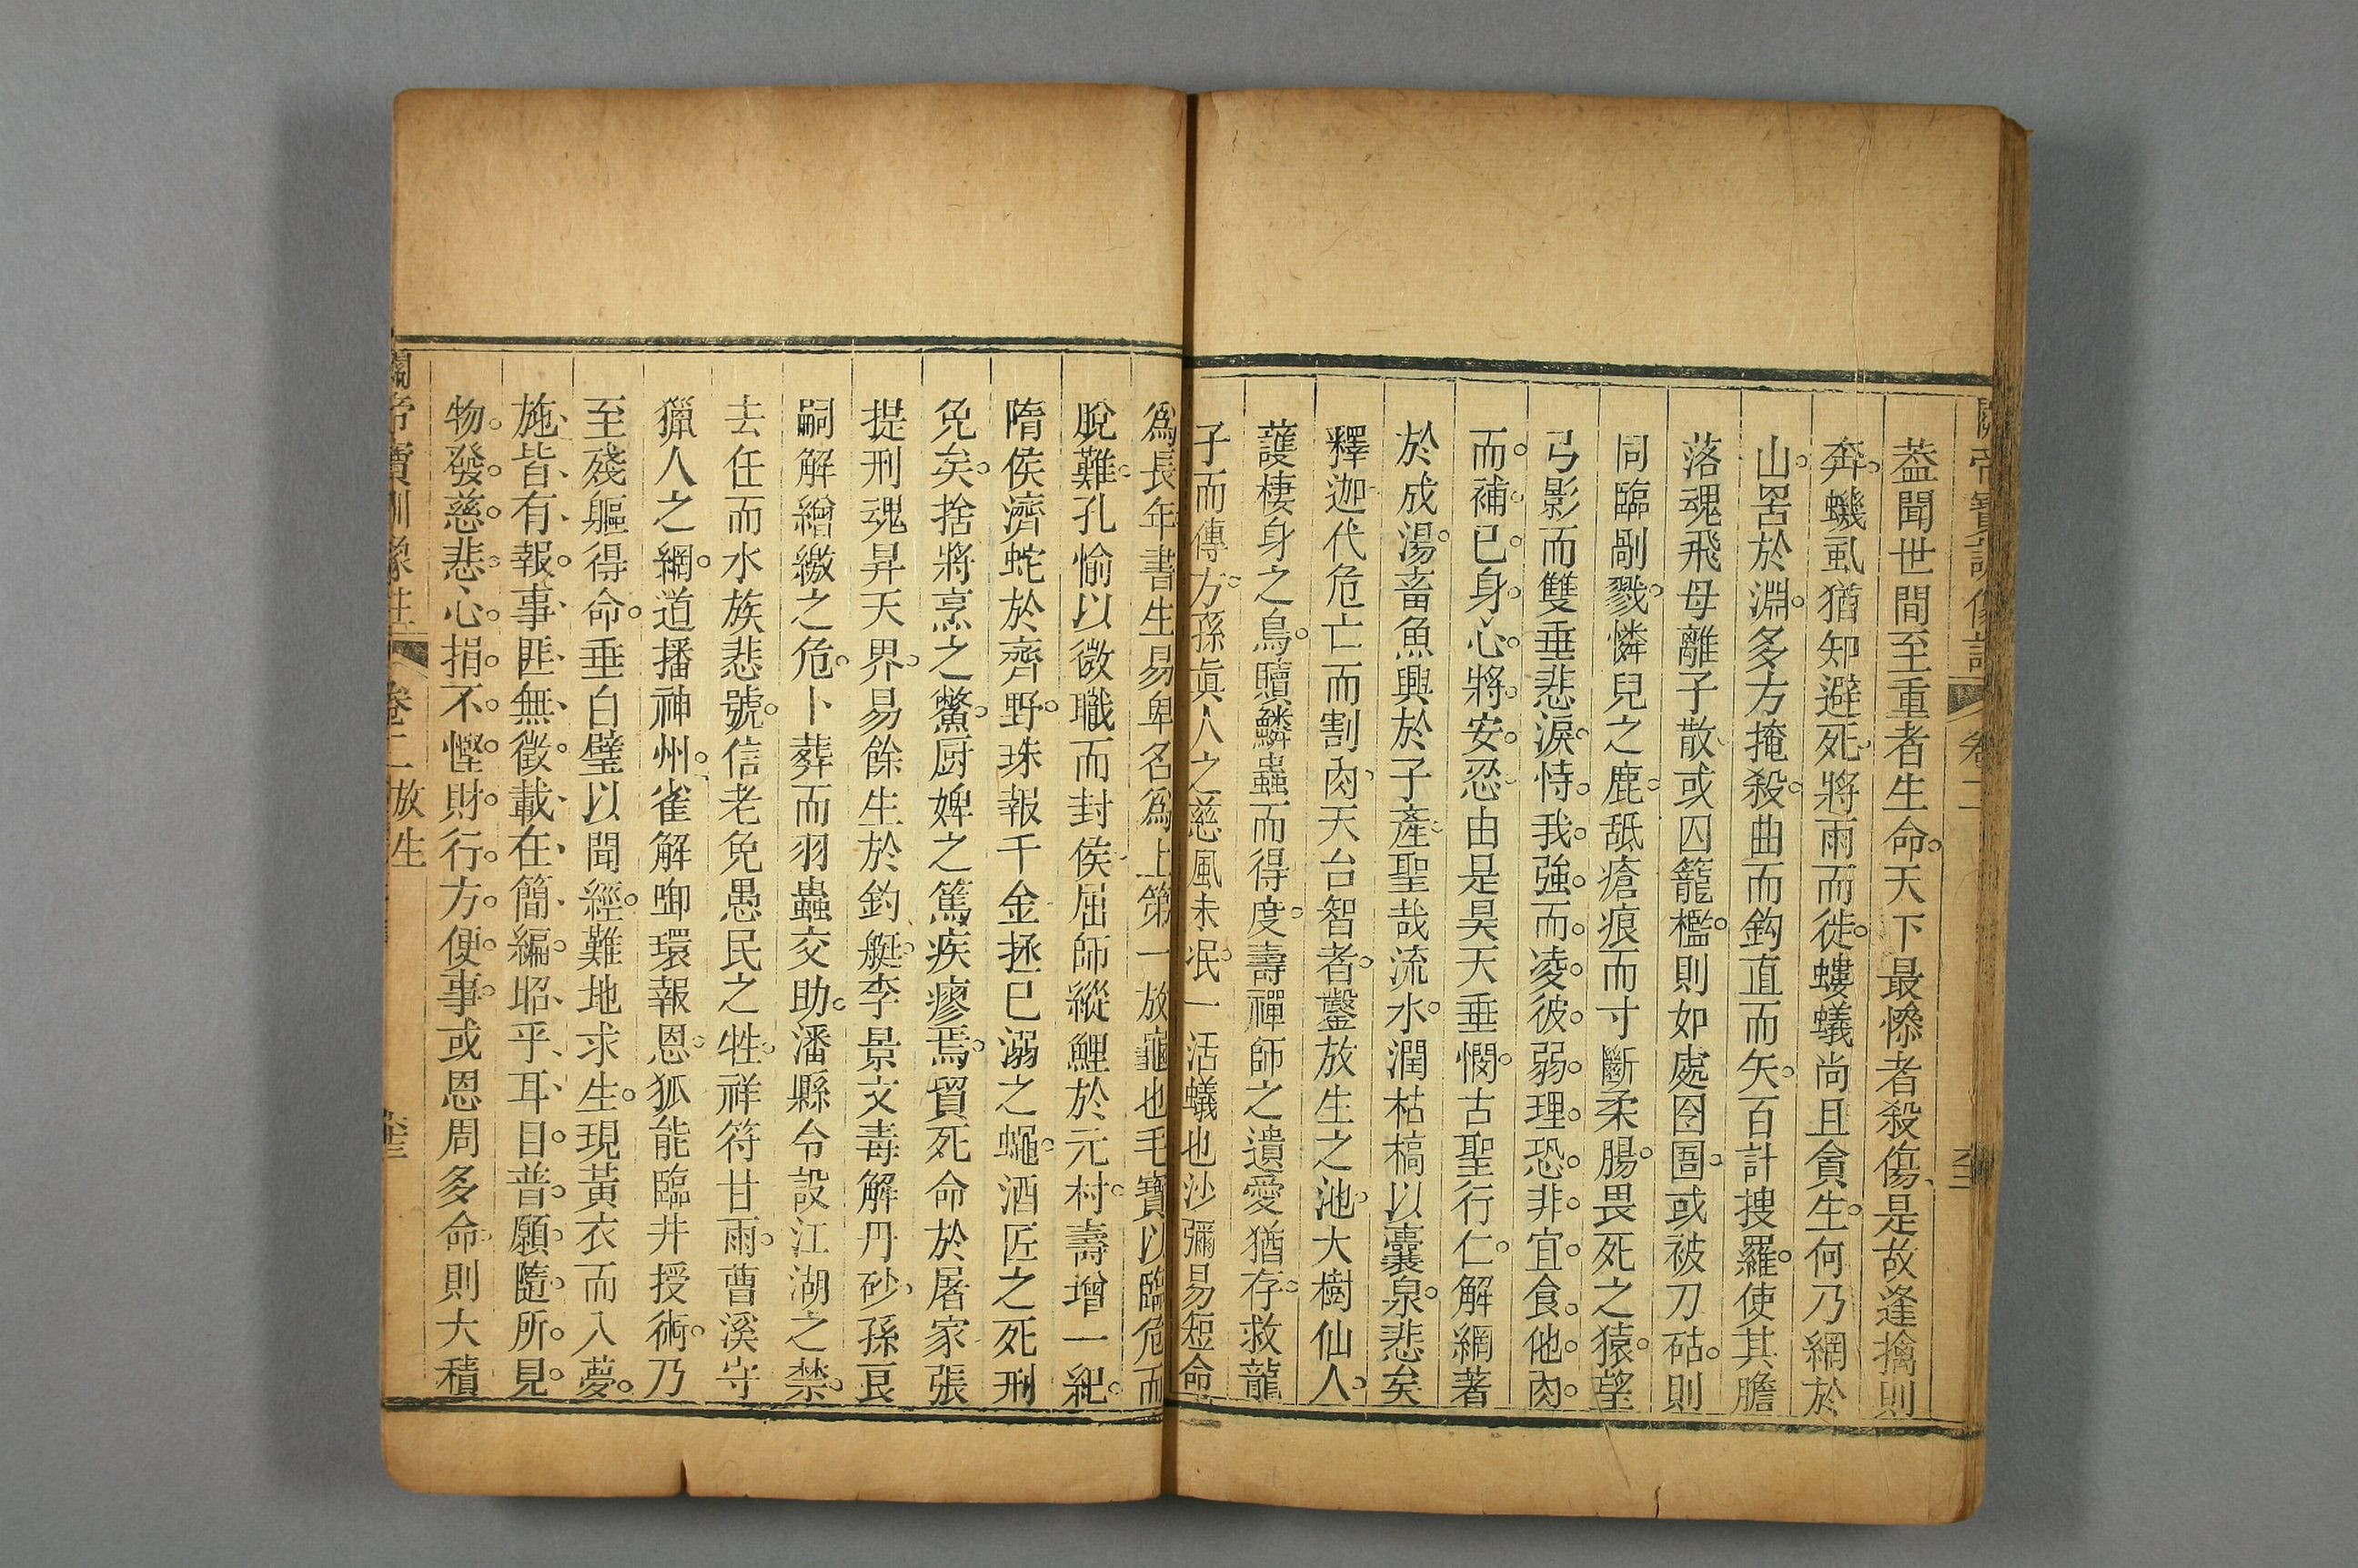 蓋聞世間至重者生命。天下最慘者殺傷、是故逢擒則
奔。蟣虱猶知避死、將雨而徙。螻蟻尚且貪生。何乃網於
山。罟於淵。多方掩殺。曲而鈎直而矢。百計搜羅。使其膽
落魂飛母離子散、或囚籠檻。則如處囹圄。或被刀砧。則
同臨剮戮。憐兒之鹿。舐瘡痕而寸斷柔腸。畏死之猿。望
弓影而雙垂悲淚。恃。我。強。而。凌。彼。弱。理。恐。非。宜。食。他。肉。
而。補。已。身。心。將。安。忍。由是昊天垂憫。古聖行仁。解網著
於成湯。畜魚興於子產。聖哉流水。潤枯槁以囊泉。悲矣
釋迦、代危亡而割肉、天台智者。鑿放生之池。大樹仙人。
護棲身之鳥。贖鱗蟲而得度。壽禪師之遺愛猶存。救龍
子而傳方。孫眞人之慈風未泯。一活蟻也沙彌易短命
爲長年書生易卑名爲上第一放龜也毛寶以臨危而
脫難。孔愉以微職而封侯、屈師縱鯉於元村。壽增一紀。
隋侯濟蛇於齊野。珠報千金拯巳溺之蠅。酒匠之死刑
免矣。捨將烹之鱉。厨婢之篤疾瘳焉。貿死命於屠家張
提刑魂昇天界。易餘生於釣艇。李景文毒解丹砂、孫良
嗣解繒繳之危。卜葬而羽蟲交助。潘縣令設江湖之禁。
去任而水族悲號。信老免愚民之牲。祥符甘雨。曹溪守
獵人之網。道播神州。雀解啣環報恩。狐能臨井授術。乃
至殘軀得命。垂白璧以聞經。難地求生。現黃衣而入夢。
施、皆、有、報。事、匪、無、徵。載、在、簡、編。昭、乎、耳、目。普。願。隨。所。見。
物。發。慈。悲。心。捐。不。慳。財。行。方。便。事。或恩周多命。則大積
關帝寶訓像註 卷二 放生